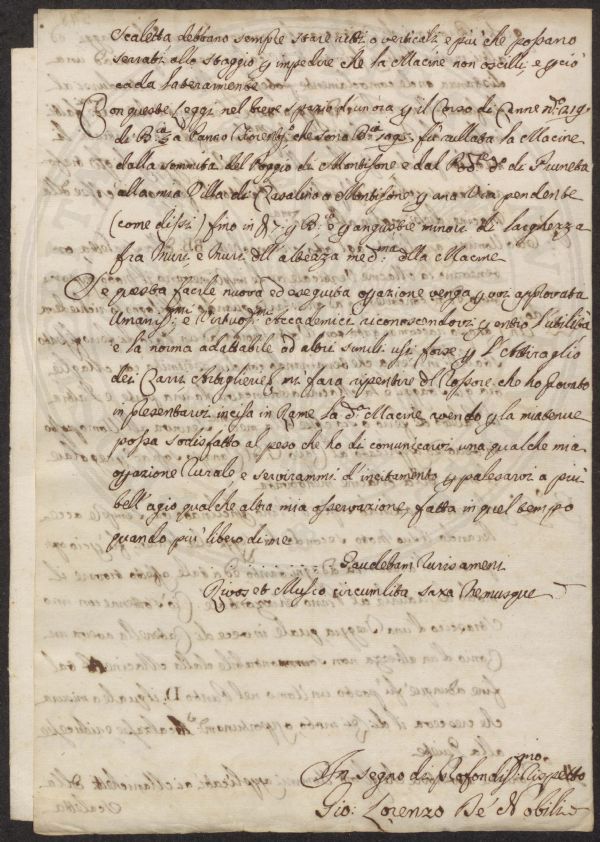 Scaletta debbano sempre stare ritti o verticali, e più che possano
serrati allo staggio p impedire che la Macine non oscilli, e p ciò
cada lateramente.
Con queste Leggi nel breve spazio di un ora p il Corso di Canne n.o
di a Panno Fiorent.o che sono fù rullata la Macine
dalla sommità del Poggio di Montisone e dal di Pruneta
alla mia Villa di Casalino a Montisone p una Via pendente
(come dissi) fino in p e p angustie minori di larghezza
fra Muri, e Muri dll' altezza med.ma dlla Macine
Se questa facile nuova ed eseguita opazione venga p voi approvata
Umaniss.mi e Virtuos.mi Accademici riconoscendovi p entro l'utilità
e la norma adattabile ad altri simili usi forse p l'Attiraglio
dei Carri Artiglierie, mi farà ripentire dl Rossore che ho provato
in presentarvi incisa in Rame la d.a Macine avendo p la mia tenue
possa sodisfatto al peso che ho di comunicarvi una qualche mia
opazione Rurale, e servirammi d'incitamento p palesarvi a più
bell' agio qualche altra mia osservazione, fatta in quel tempo
quando più libero di me
. . . . . . . Gaudebam Ruris ameni
Rivos et Musio circumlita Saxa Nemusque
In segno di Profondiss.mo Rispetto
Gio: Lorenzo De' Nobili